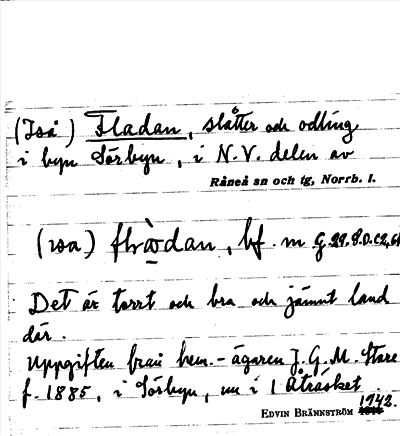 (Iså) Fladan, slåtter och odling
i byn Sörbyn, i N.V. delen av
Råneå sn och tg, Norrb. l.
(ɩsa) flàdan, bf. m
Det är torrt och bra och jämnt land
där.
Uppgiften från hem.-ägaren J. G. M. Stare
f. 1885, i Sörbyn, nu i 1 Åträsket.
1942.
EDVIN BRÄNNSTRÖM